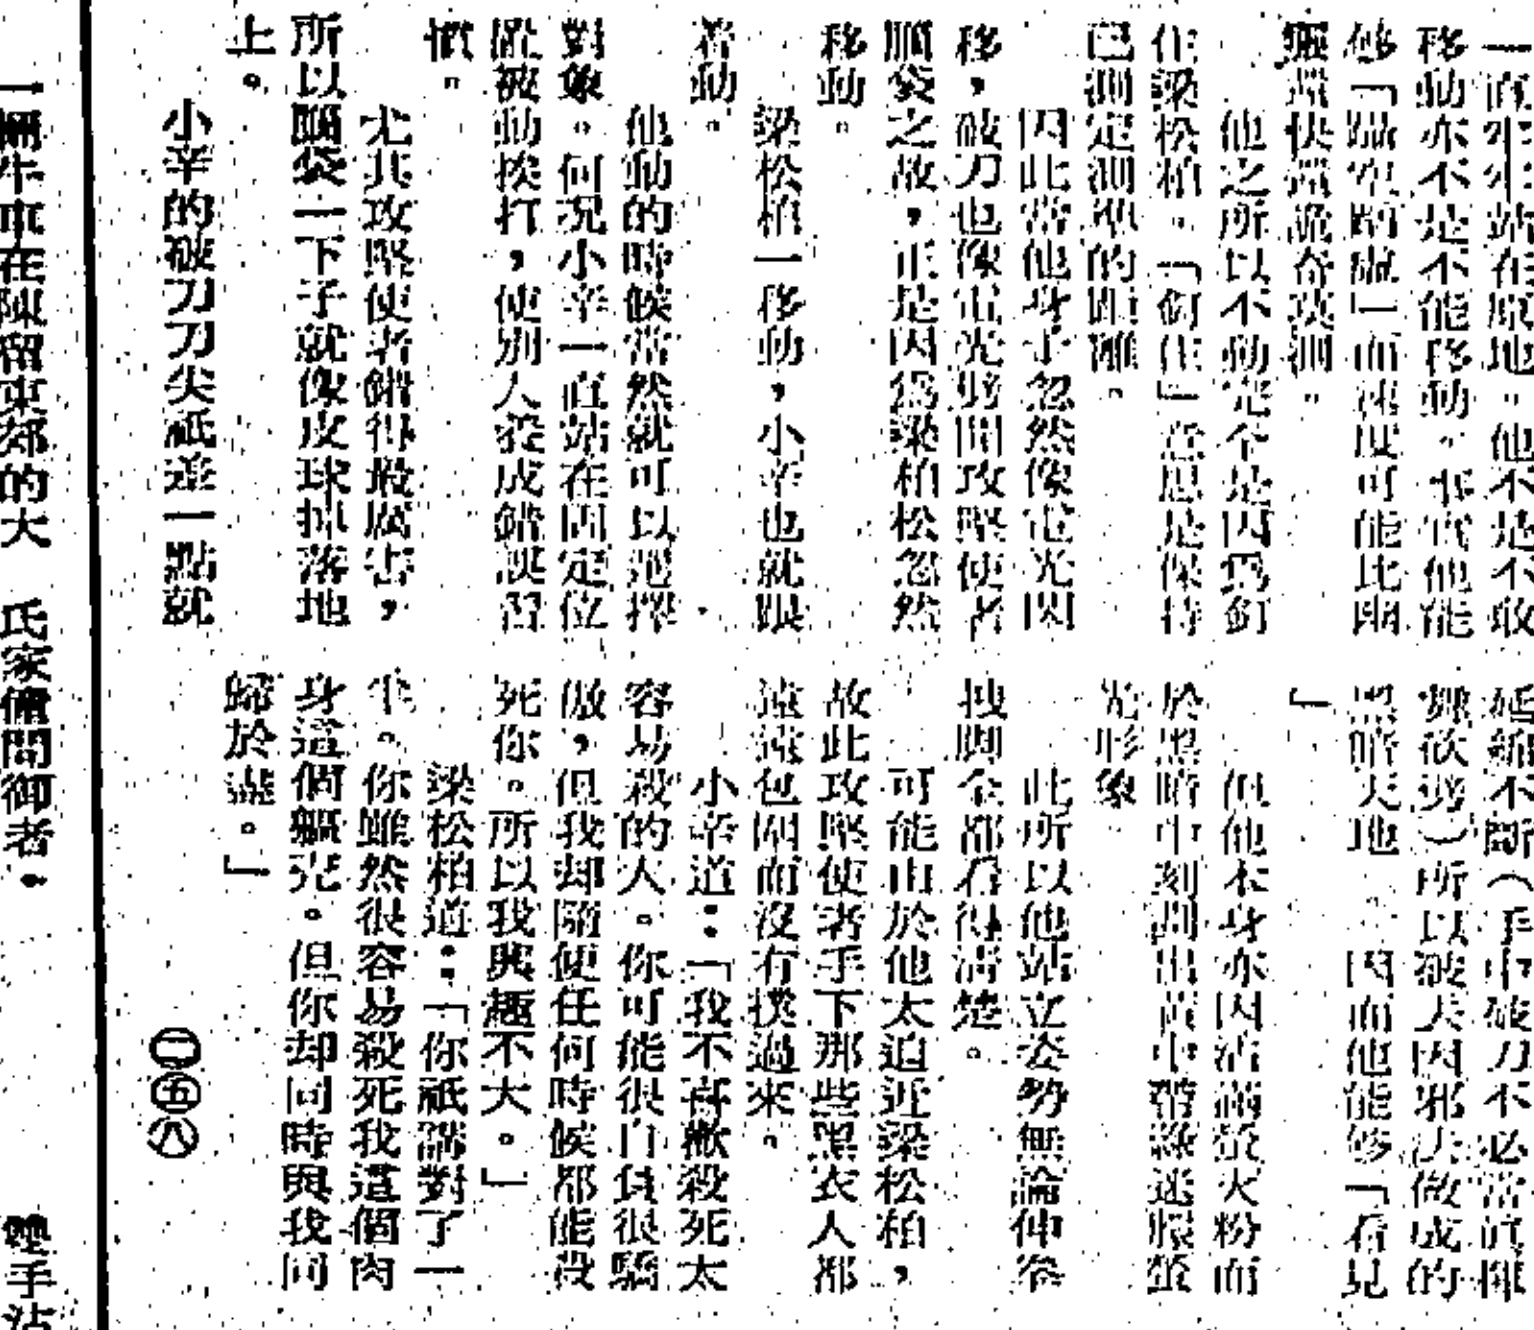 一直牢牢站在原地。他不是不敢
移動亦不是不能移動。事實他能
够「躡空蹈虛」而速度可能比幽
靈還快還詭奇莫測。
他之所以不動完全是因爲釘
住梁松柏。「釘住」意思是保持
已測定測準的距離。
因此當他身子忽然像電光閃
移，破刀也像電光劈開攻堅使者
腦袋之故，正是因爲梁柏松忽然
移動。
梁松柏一移動，小辛也就跟
着動。
他動的時候當然就可以選擇
對象。何況小辛一直站在固定位
置被動挨打，使別人養成錯誤習
慣。
尤其攻堅使者錯得最厲害，
所以腦袋一下子就像皮球掉落地
上。
小辛的破刀刀尖祇差一點就
延綿不斷（手中破刀不必當眞揮
舞欲劈）所以被大因邪法做成的
黑暗天地　因而他能够「看見
」
但他本身亦因沾滿螢火粉而
於黑暗中刻劃出黃中帶綠迷朦螢
光形象
此所以他站立姿勢無論伸拳
拽脚全都看得清楚。
可能由於他太迫近梁松柏，
故此攻堅使者手下那些黑衣人都
遠遠包圍而沒有撲過來。
小辛道：「我不喜歡殺死太
容易殺的人。你可能很自負很驕
傲，但我却隨便任何時候都能殺
死你。所以我興趣不大。」
梁松柏道：「你祇講對了一
半。你雖然很容易殺死我這個肉
身這個軀壳。但你却同時與我同
歸於盡。」
二五八
一輛牛車在陳留東郊的大　氏家傭問御者。
手沾